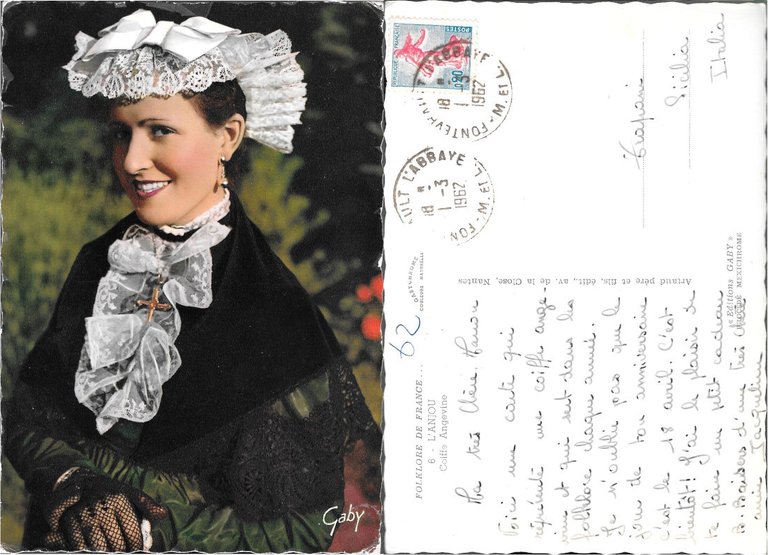 Gaby
REPUBLIQUE FRANÇAISE
POSTES
0,20
FONTEVRAULT L'ABBAYE
M. ET L.
18 H
1 -3
1962
ULT L'ABBAYE
FON
M. ET L
18 H
1 -3
1962
Trapani
Sicilia
Italia
62
FOLKLORE DE FRANCE...
6 - L'ANJOU
Coiffe Angevine
COULEURS NATURELLES
Artaud père et fils, édit., av. de la Close, Nantes
« Editions GABY »
MEXICHROME
Ma très Chère
Voici une carte qui
représente une coiffe ange-
vine et qui est dans les
folklore chaque année.
Je n'oublie pas que le
jour de ton anniversaire
c'est le 18 avril. C'est
bientôt! J'ai le plaisir de
te faire un petit cadeau
Baisers d'une très Chère
amie Jacqueline